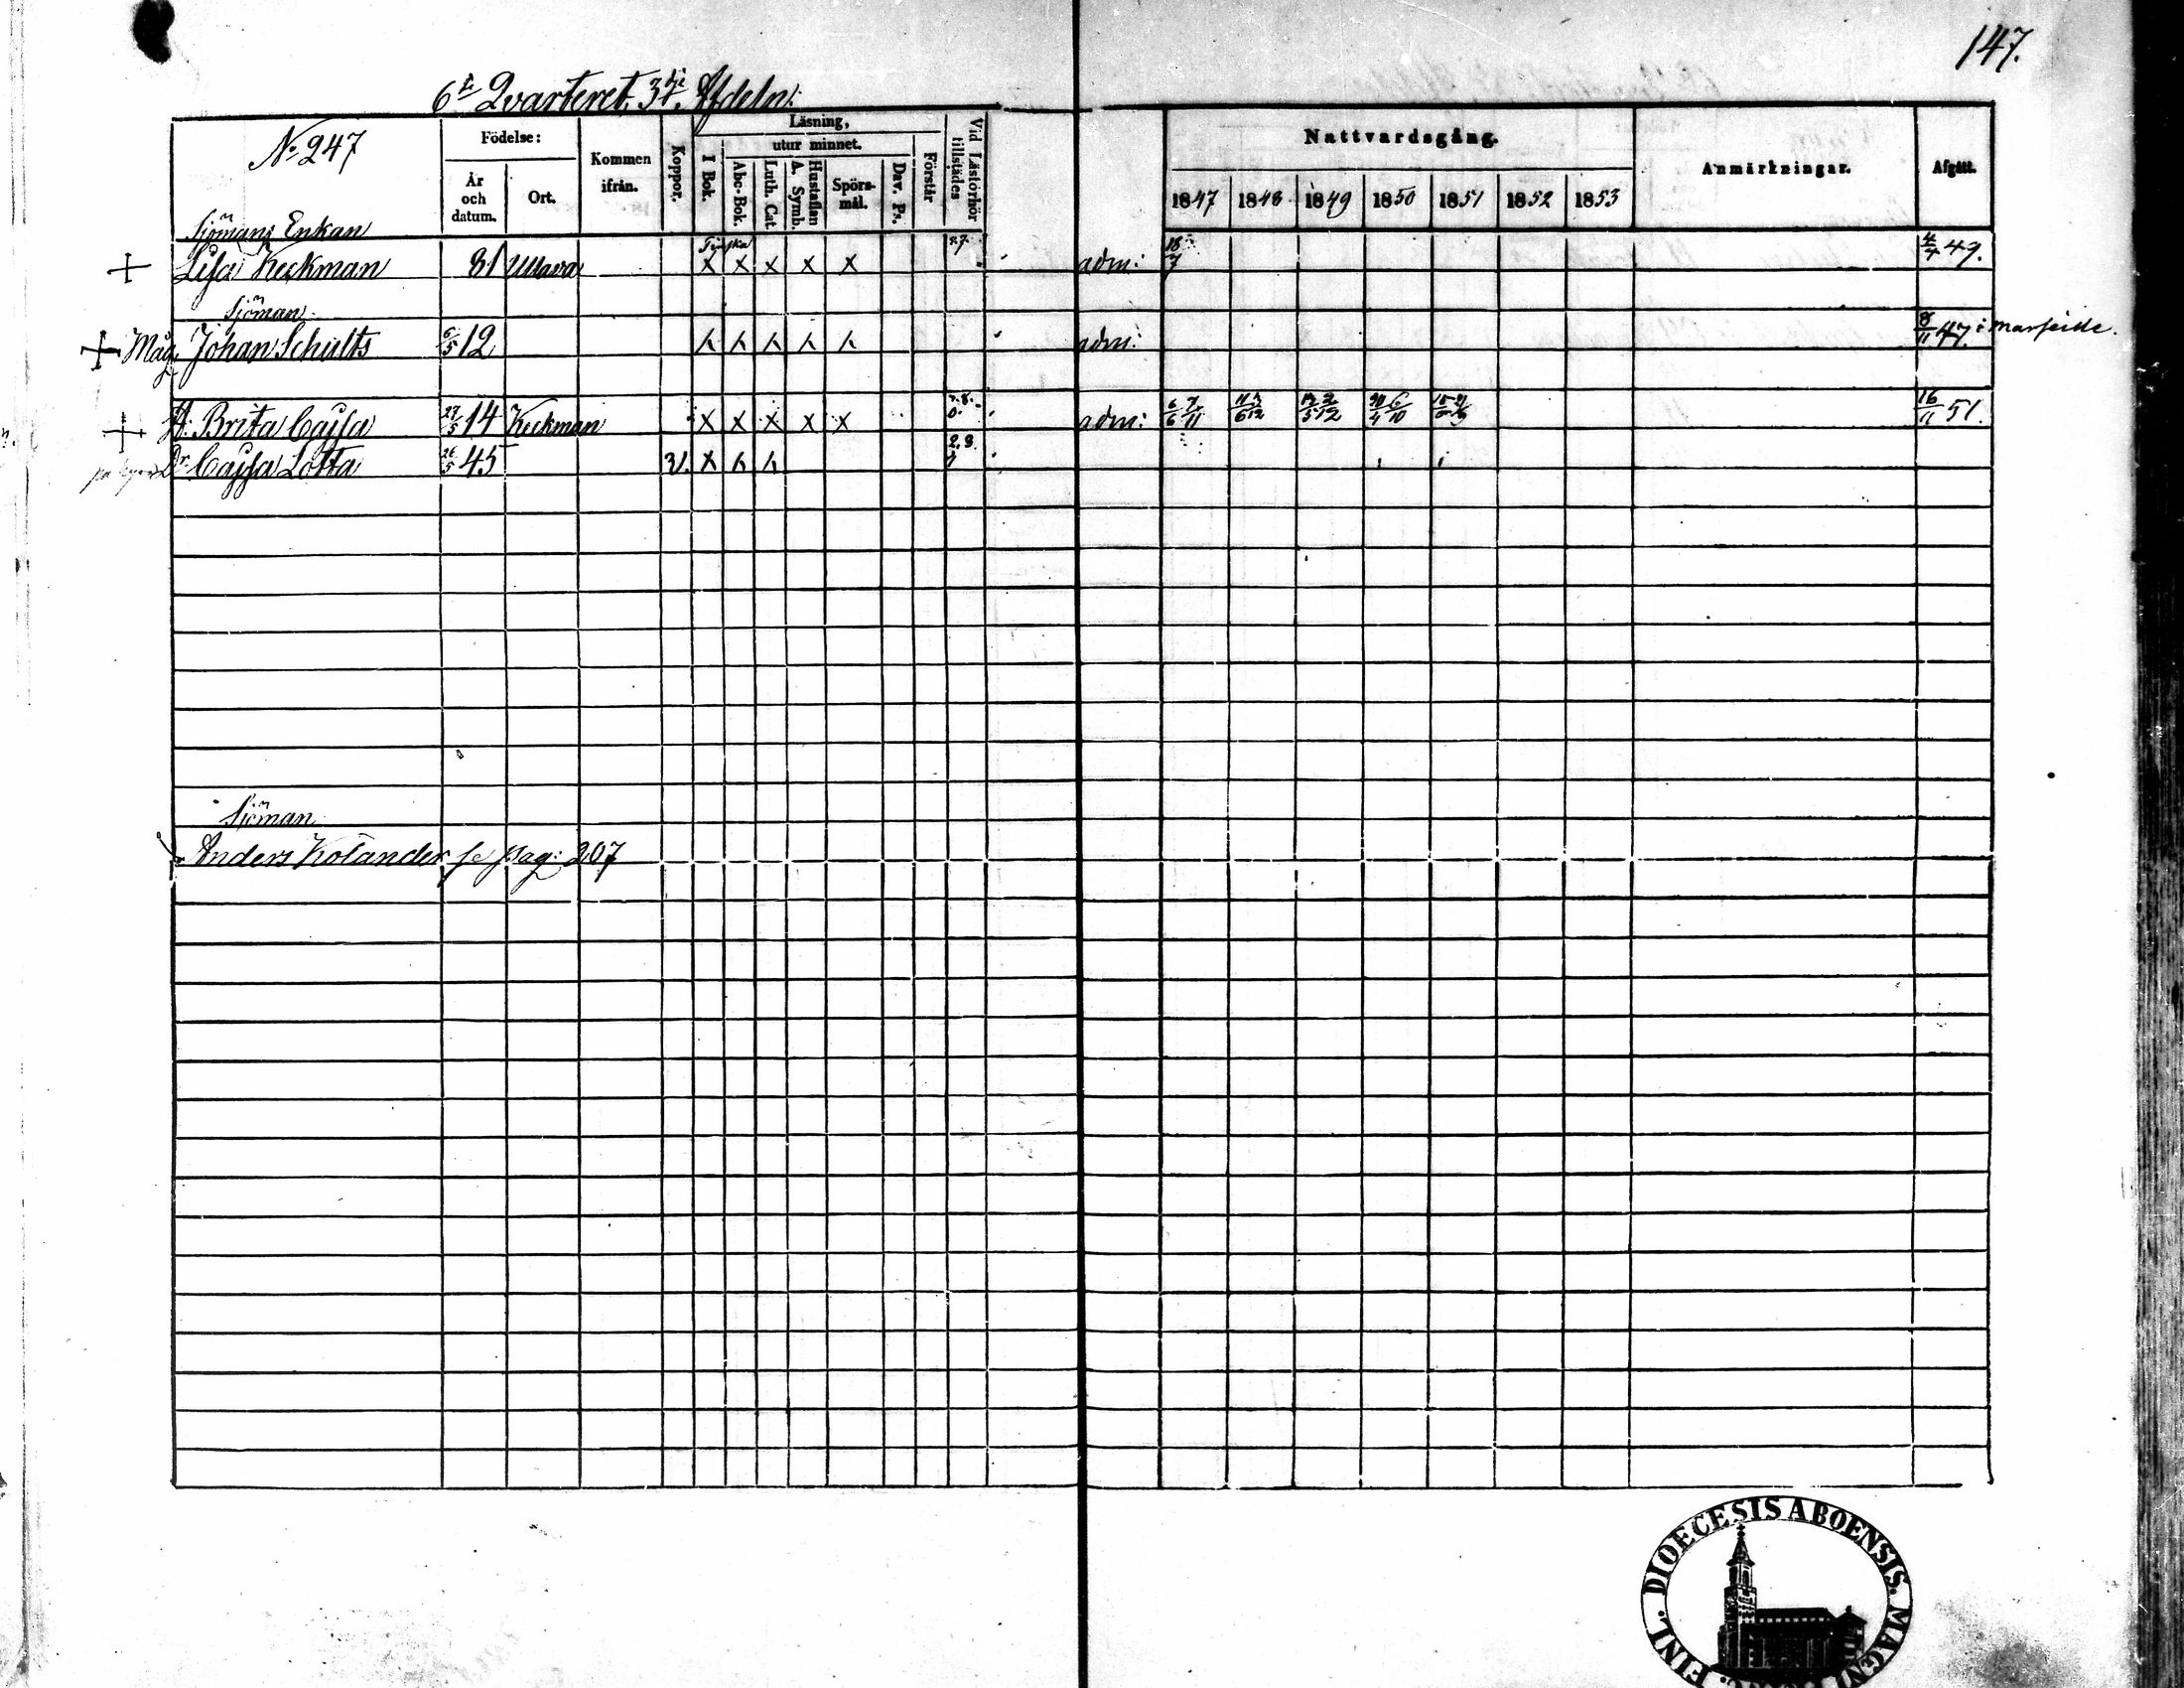 147.
6te Qvarteret. 3dje Afdeln:
No 247
Födelse:
År och datum.
Ort.
Kommen ifrån.
Koppor.
Läsning,
I Bok.
utur minnet.
Abc-Bok.
Luth. Cat
Hustaflan A. Symb.
Spörs-mål.
Dav. Ps.
Förstår
Vid Läsförhör tillstädes
Nattvardsgång.
1847 1848 1849 1850 1851 1852 1853
Anmärkningar.
Afgått.
Sjömans Enkan
Lisa Keckman 81 Ullava Finska x x x x x adm: 18/7 4/4 49.
Sjöman
Måg Johan Schults 6/5 12 adm: 8/11 47. i Marseille.
H: Brita Cajsa 27/5 14 Keckman x x x x x adm: 16/11 51.
Dr Cajsa Lotta 26/5 45 v. x
Sjöman
Anders Kolander se pag: 207
FINL. DIOECESIS ABOENSIS. MAGNI